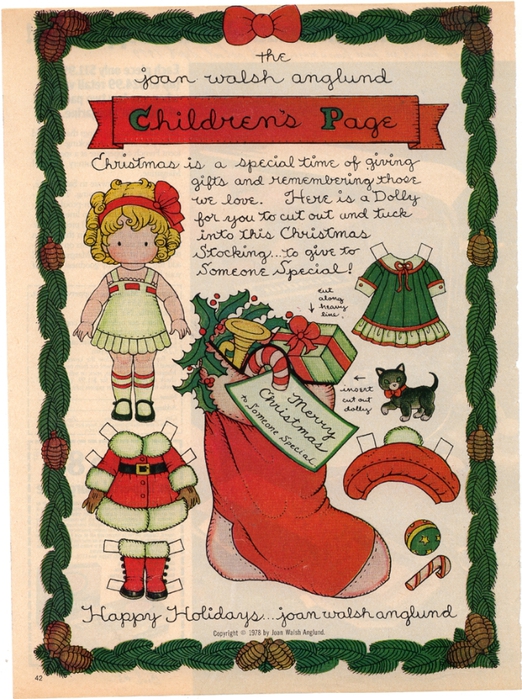 the
joan walsh anglund
Children's Page
Christmas is a special time of giving
gifts and remembering those
we love. Here is a Dolly
for you to cut out and tuck
into this Christmas
Stocking...to give to
Someone Special!
cut
along
heavy
line.
insert
cut out
dolly
Merry
Christmas
to Someone Special
Happy Holidays...joan walsh anglund
Copyright © 1978 by Joan Walsh Anglund.
42